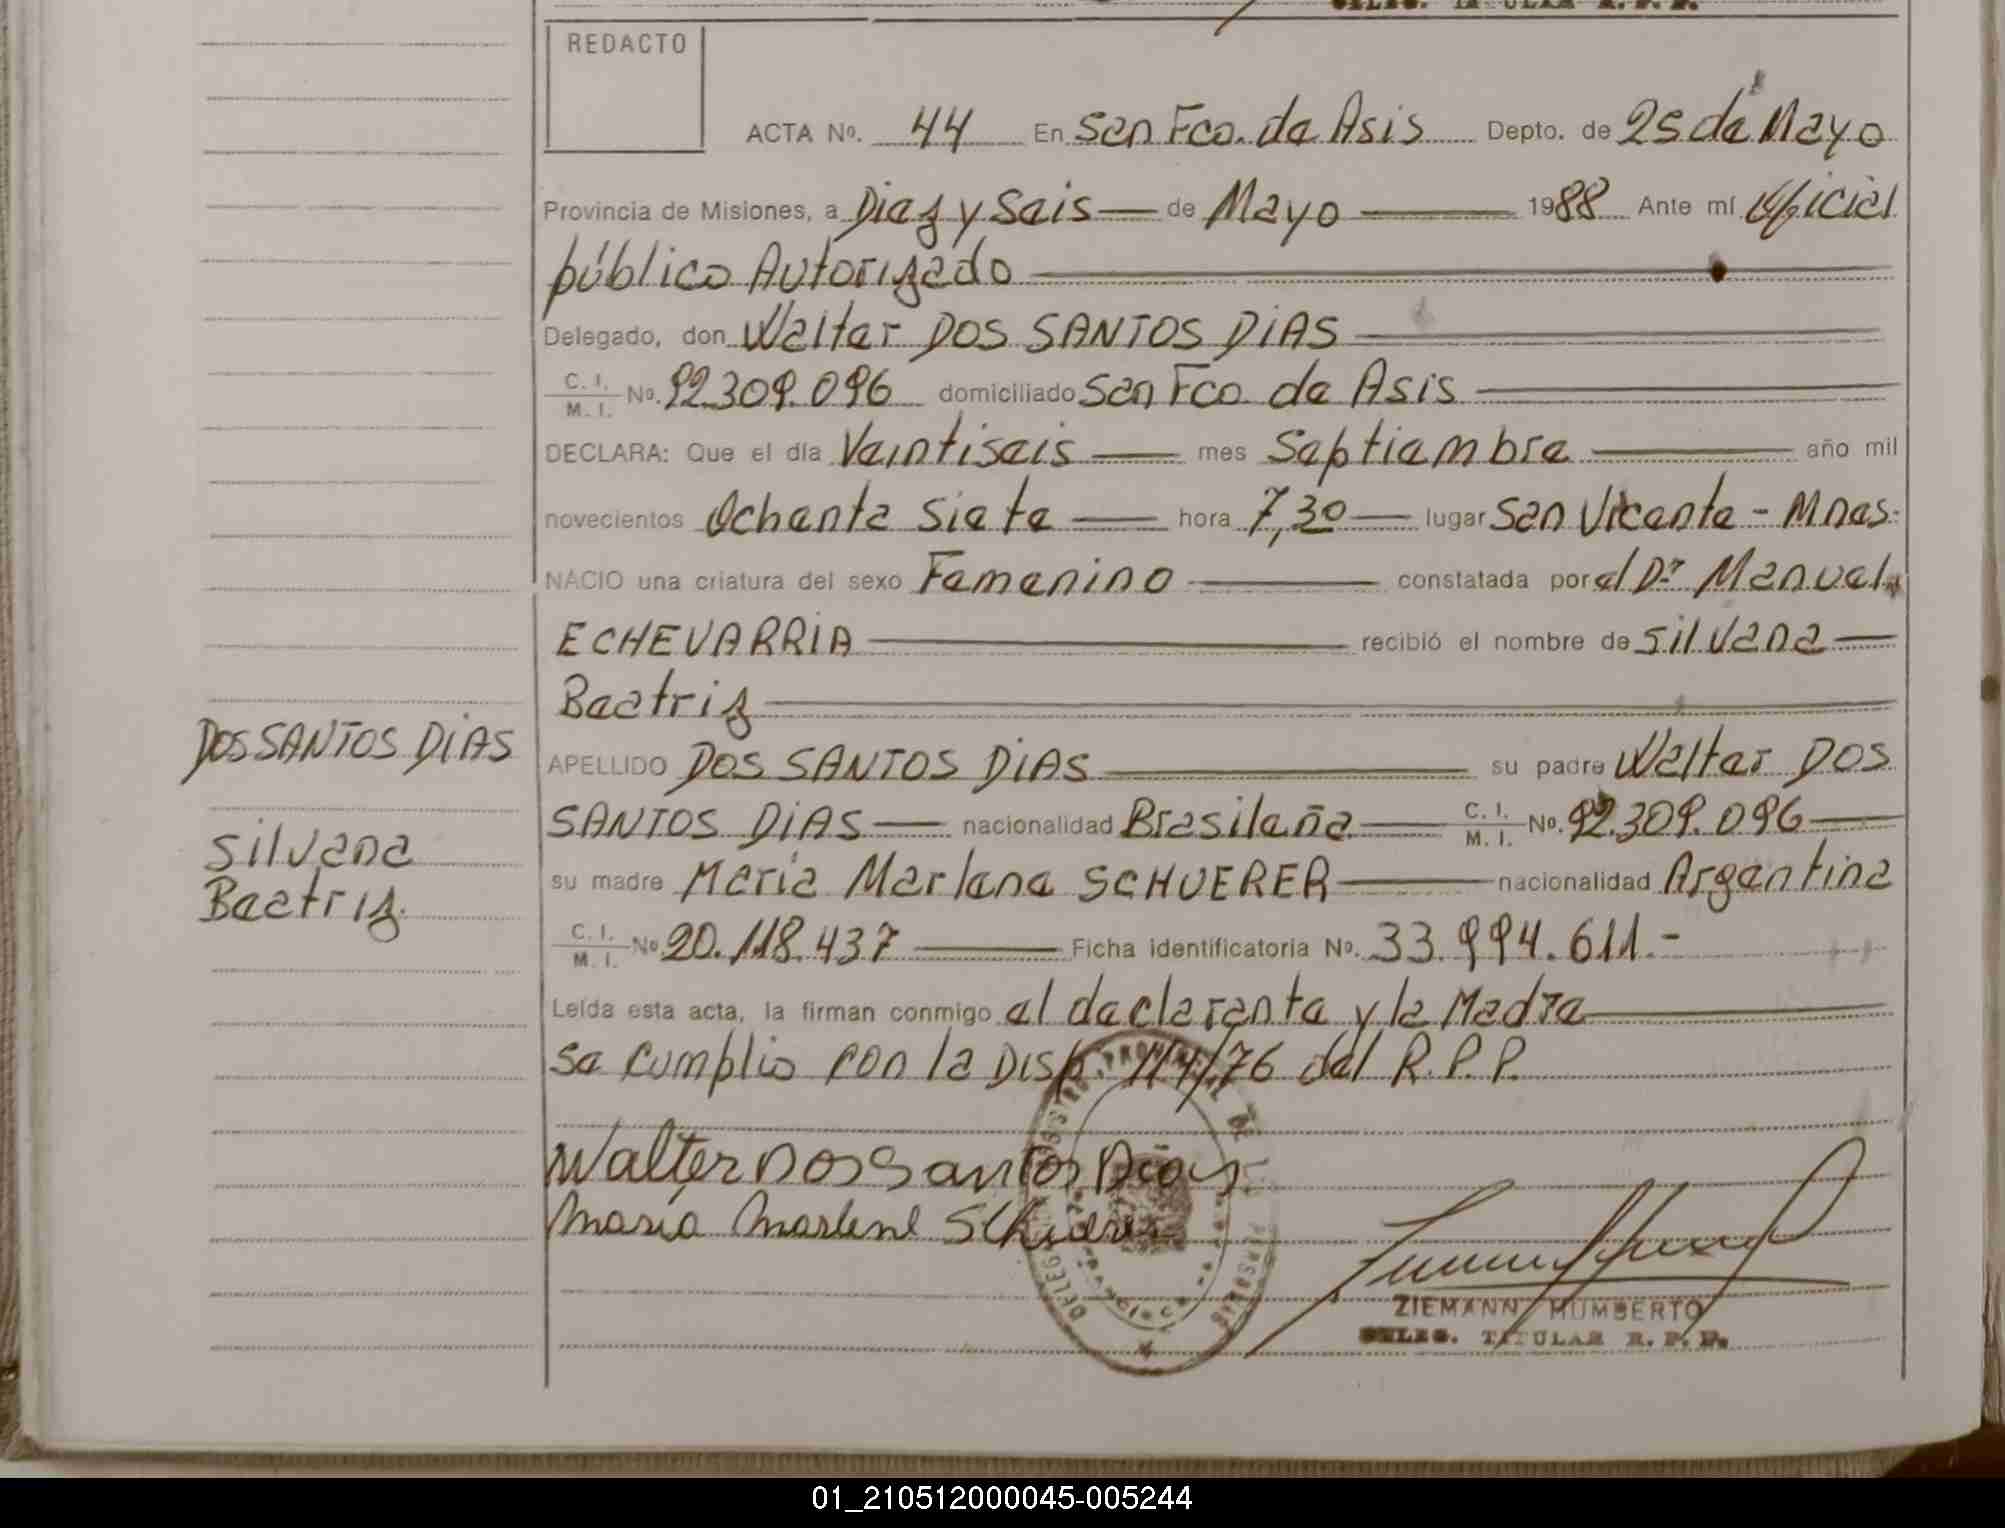 DELEG. TITULAR R. P. P.
REDACTO
ACTA No. 44 En San Fco. de Asis Depto. de 25 de Mayo
Provincia de Misiones, a Diez y Seis de Mayo 1988 Ante mí Oficial
público Autorizado
Delegado, don Walter DOS SANTOS DIAS
C. I.
M. I. No. 92.309.096 domiciliado San Fco de Asis
DECLARA: Que el día Veintiseis mes Septiembre año mil
novecientos Ochenta Siete hora 7,30 lugar San Vicente - Mnes.
NACIO una criatura del sexo Femenino constatada por el Dr Manuel
ECHEVARRIA recibió el nombre de Silvana
Beatriz
DOS SANTOS DIAS
APELLIDO DOS SANTOS DIAS su padre Walter DOS
SANTOS DIAS nacionalidad Brasileña C. I.
M. I. No. 92.309.096
Silvana
Beatriz.
su madre Maria Marlene SCHUERER nacionalidad Argentina
C. I.
M. I. No 20.118.437 Ficha identificatoria No. 33.994.611.-
Leída esta acta, la firman conmigo el declarante y la Madre
Se cumplio con la Disp. 114/76 del R.P.P.
Walter Dos Santos Dias
Maria Marlene Schuerer
ZIEMANN HUMBERTO
DELEG. TITULAR R. P. P.
01_210512000045-005244